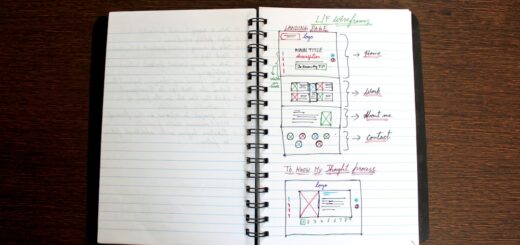 L/F Wireframes
LANDING PAGE
logo
MAIN TITLE
description
Home
Work
About me
Contact
To Know My Thought Process
logo
1 2 3 4 5 6 7 8